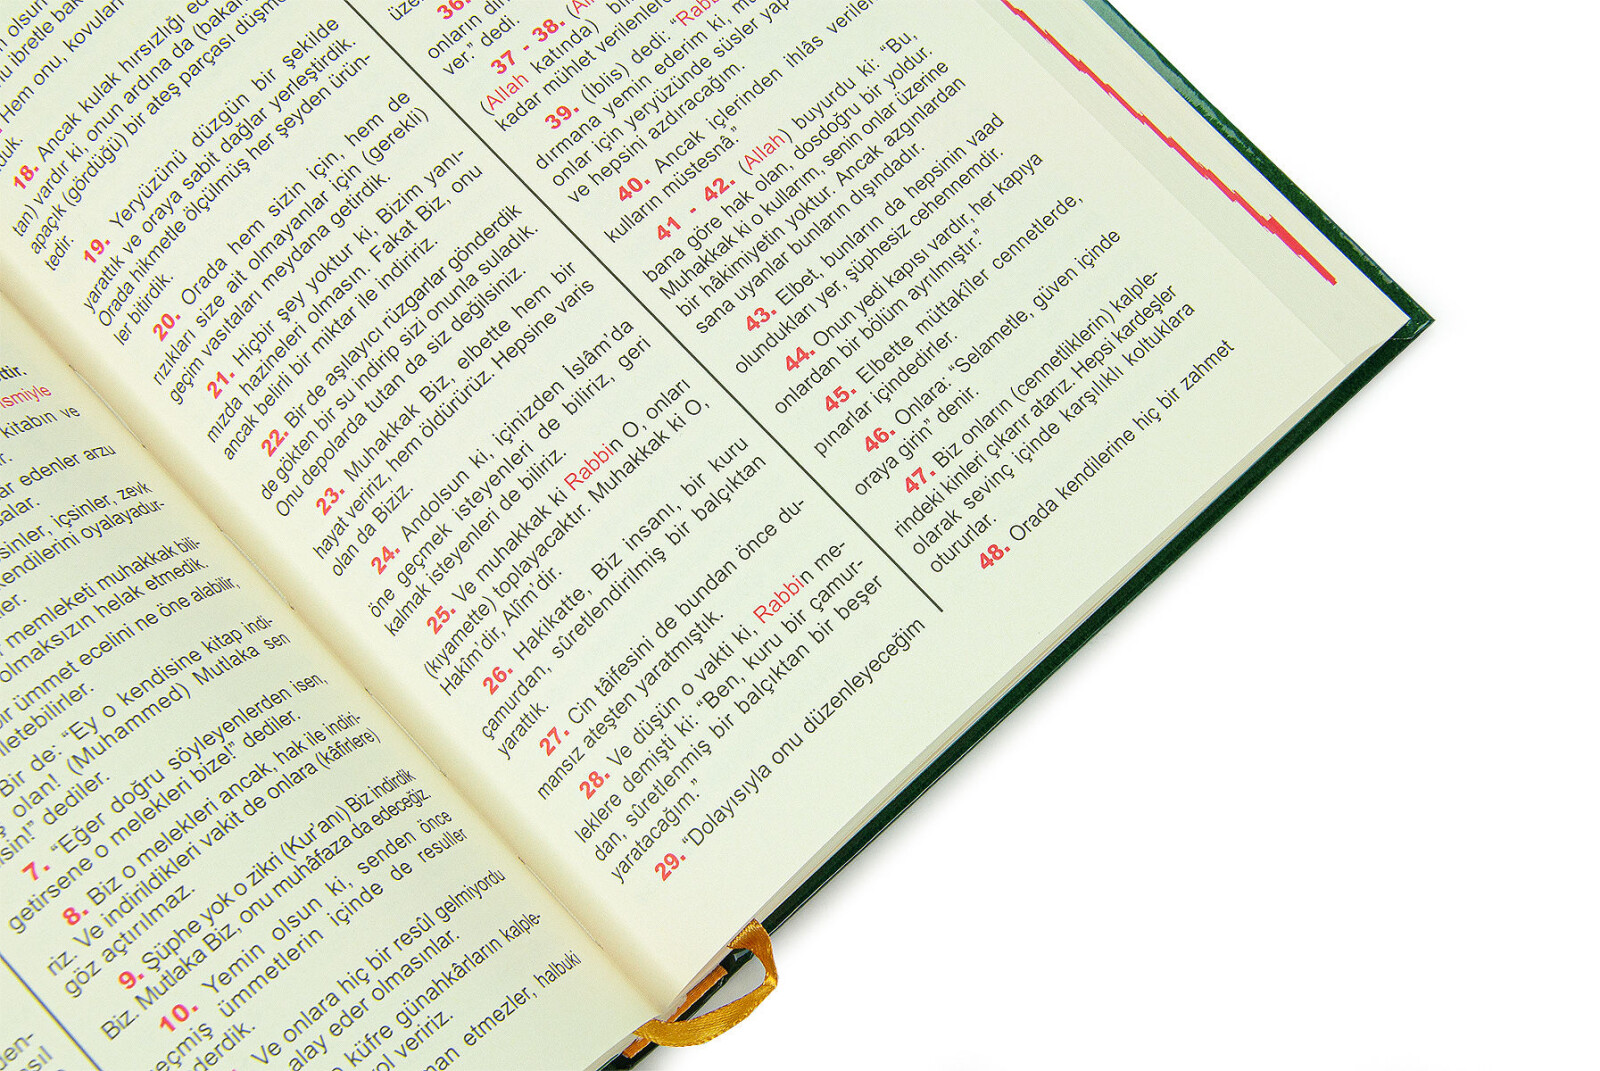 ttir.
ismiyle
kitabın ve
r.
ar edenler arzu
salar.
sinler, içsinler, zevk
kendilerini oyalayadur-
ler.
r memleketi muhakkak bili-
olmaksızın helak etmedik.
ir ümmet ecelini ne öne alabilir,
iletebilirler.
Bir de: “Ey o kendisine kitap indi-
olan! (Muhammed) Mutlaka sen
sin!” dediler.
7. “Eğer doğru söyleyenlerden isen,
getirsene o melekleri bize!” dediler.
8. Biz o melekleri ancak, hak ile indiri-
riz. Ve indirildikleri vakit de onlara (kâfirlere)
göz açtırılmaz.
9. Şüphe yok o zikri (Kur’anı) Biz indirdik
Biz. Mutlaka Biz, onu muhâfaza da edeceğiz.
10. Yemin olsun ki, senden önce
geçmiş ümmetlerin içinde de resuller
derdik.
Ve onlara hiç bir resûl gelmiyordu
alay eder olmasınlar.
küfre günahkârların kalple-
ol veririz.
man etmezler, halbuki
n olsun
u ibretle bak
Hem onu, kovulan
duk.
18. Ancak kulak hırsızlığı ed
tan) vardır ki, onun ardına da (bakan
apaçık (gördüğü) bir ateş parçası düşm
tedir.
19. Yeryüzünü düzgün bir şekilde
yarattık ve oraya sabit dağlar yerleştirdik.
Orada hikmetle ölçülmüş her şeyden ürün-
ler bitirdik.
20. Orada hem sizin için, hem de
rızıkları size ait olmayanlar için (gerekli)
geçim vasıtaları meydana getirdik.
21. Hiçbir şey yoktur ki, Bizim yanı-
mızda hazineleri olmasın. Fakat Biz, onu
ancak belirli bir miktar ile indiririz.
22. Bir de aşılayıcı rüzgarlar gönderdik
de gökten bir su indirip sizi onunla suladık.
Onu depolarda tutan da siz değilsiniz.
23. Muhakkak Biz, elbette hem bir
hayat veririz, hem öldürürüz. Hepsine varis
olan da Biziz.
24. Andolsun ki, içinizden İslâm’da
öne geçmek isteyenleri de biliriz, geri
kalmak isteyenleri de biliriz.
25. Ve muhakkak ki Rabbin O, onları
(kıyamette) toplayacaktır. Muhakkak ki O,
Hakîm’dir, Alîm’dir.
26. Hakikatte, Biz insanı, bir kuru
çamurdan, sûretlendirilmiş bir balçıktan
yarattık.
27. Cin tâifesini de bundan önce du-
mansız ateşten yaratmıştık.
28. Ve düşün o vakti ki, Rabbin me-
leklere demişti ki: “Ben, kuru bir çamur-
dan, sûretlenmiş bir balçıktan bir beşer
yaratacağım.”
29. “Dolayısıyla onu düzenleyeceğim
36.
onların di
ver.” dedi.
37 - 38. (Al
(Allah katında) bili
kadar mühlet verilenlere
39. (İblis) dedi: “Rabb
dırmana yemin ederim ki, m
onlar için yeryüzünde süsler yap
ve hepsini azdıracağım.
40. Ancak içlerinden ihlâs verilen
kulların müstesnâ.”
41 - 42. (Allah) buyurdu ki: “Bu,
bana göre hak olan, dosdoğru bir yoldur.
Muhakkak ki o kullarım, senin onlar üzerine
bir hâkimiyetin yoktur. Ancak azgınlardan
sana uyanlar bunların dışındadır.
43. Elbet, bunların da hepsinin vaad
olundukları yer, şüphesiz cehennemdir.
44. Onun yedi kapısı vardır, her kapıya
onlardan bir bölüm ayrılmıştır.”
45. Elbette müttakîler cennetlerde,
pınarlar içindedirler.
46. Onlara: “Selametle, güven içinde
oraya girin” denir.
47. Biz onların (cennetliklerin) kalple-
rindeki kinleri çıkarır atarız. Hepsi kardeşler
olarak sevinç içinde karşılıklı koltuklara
otururlar.
48. Orada kendilerine hiç bir zahmet